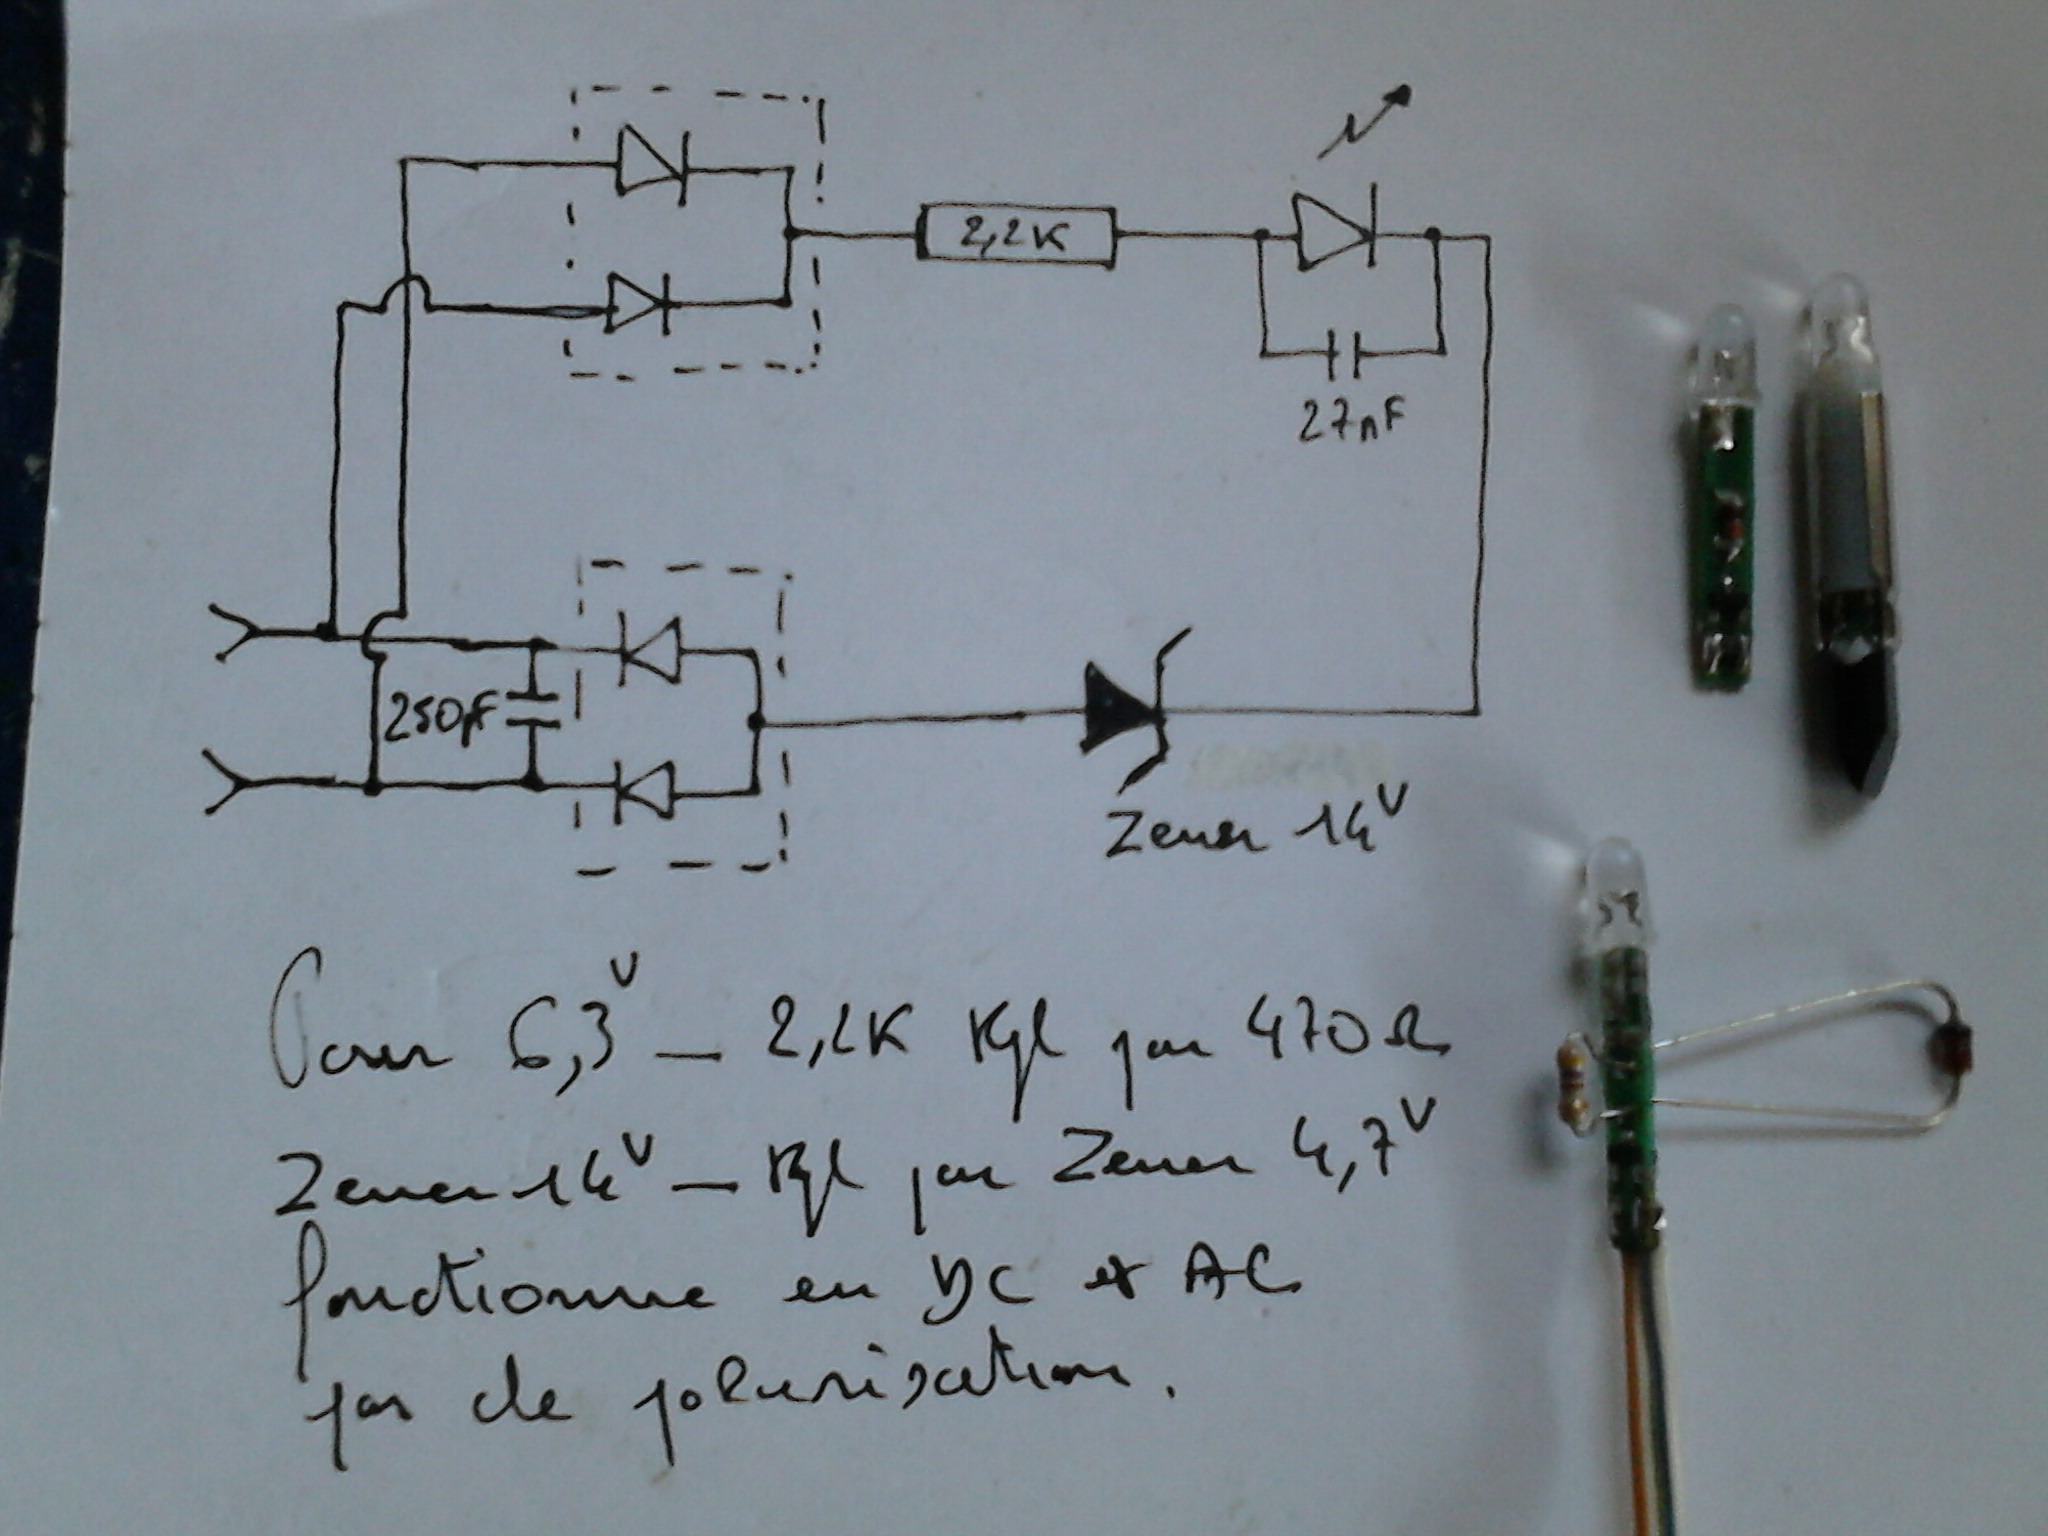 2,2K
27nF
250pF
Zener 14V
Pour 6,3V _ 2,2K Rpl par 470Ω
Zener 14V _ Rpl par Zener 4,7V
fonctionne en DC et AC
pas de polarisation.